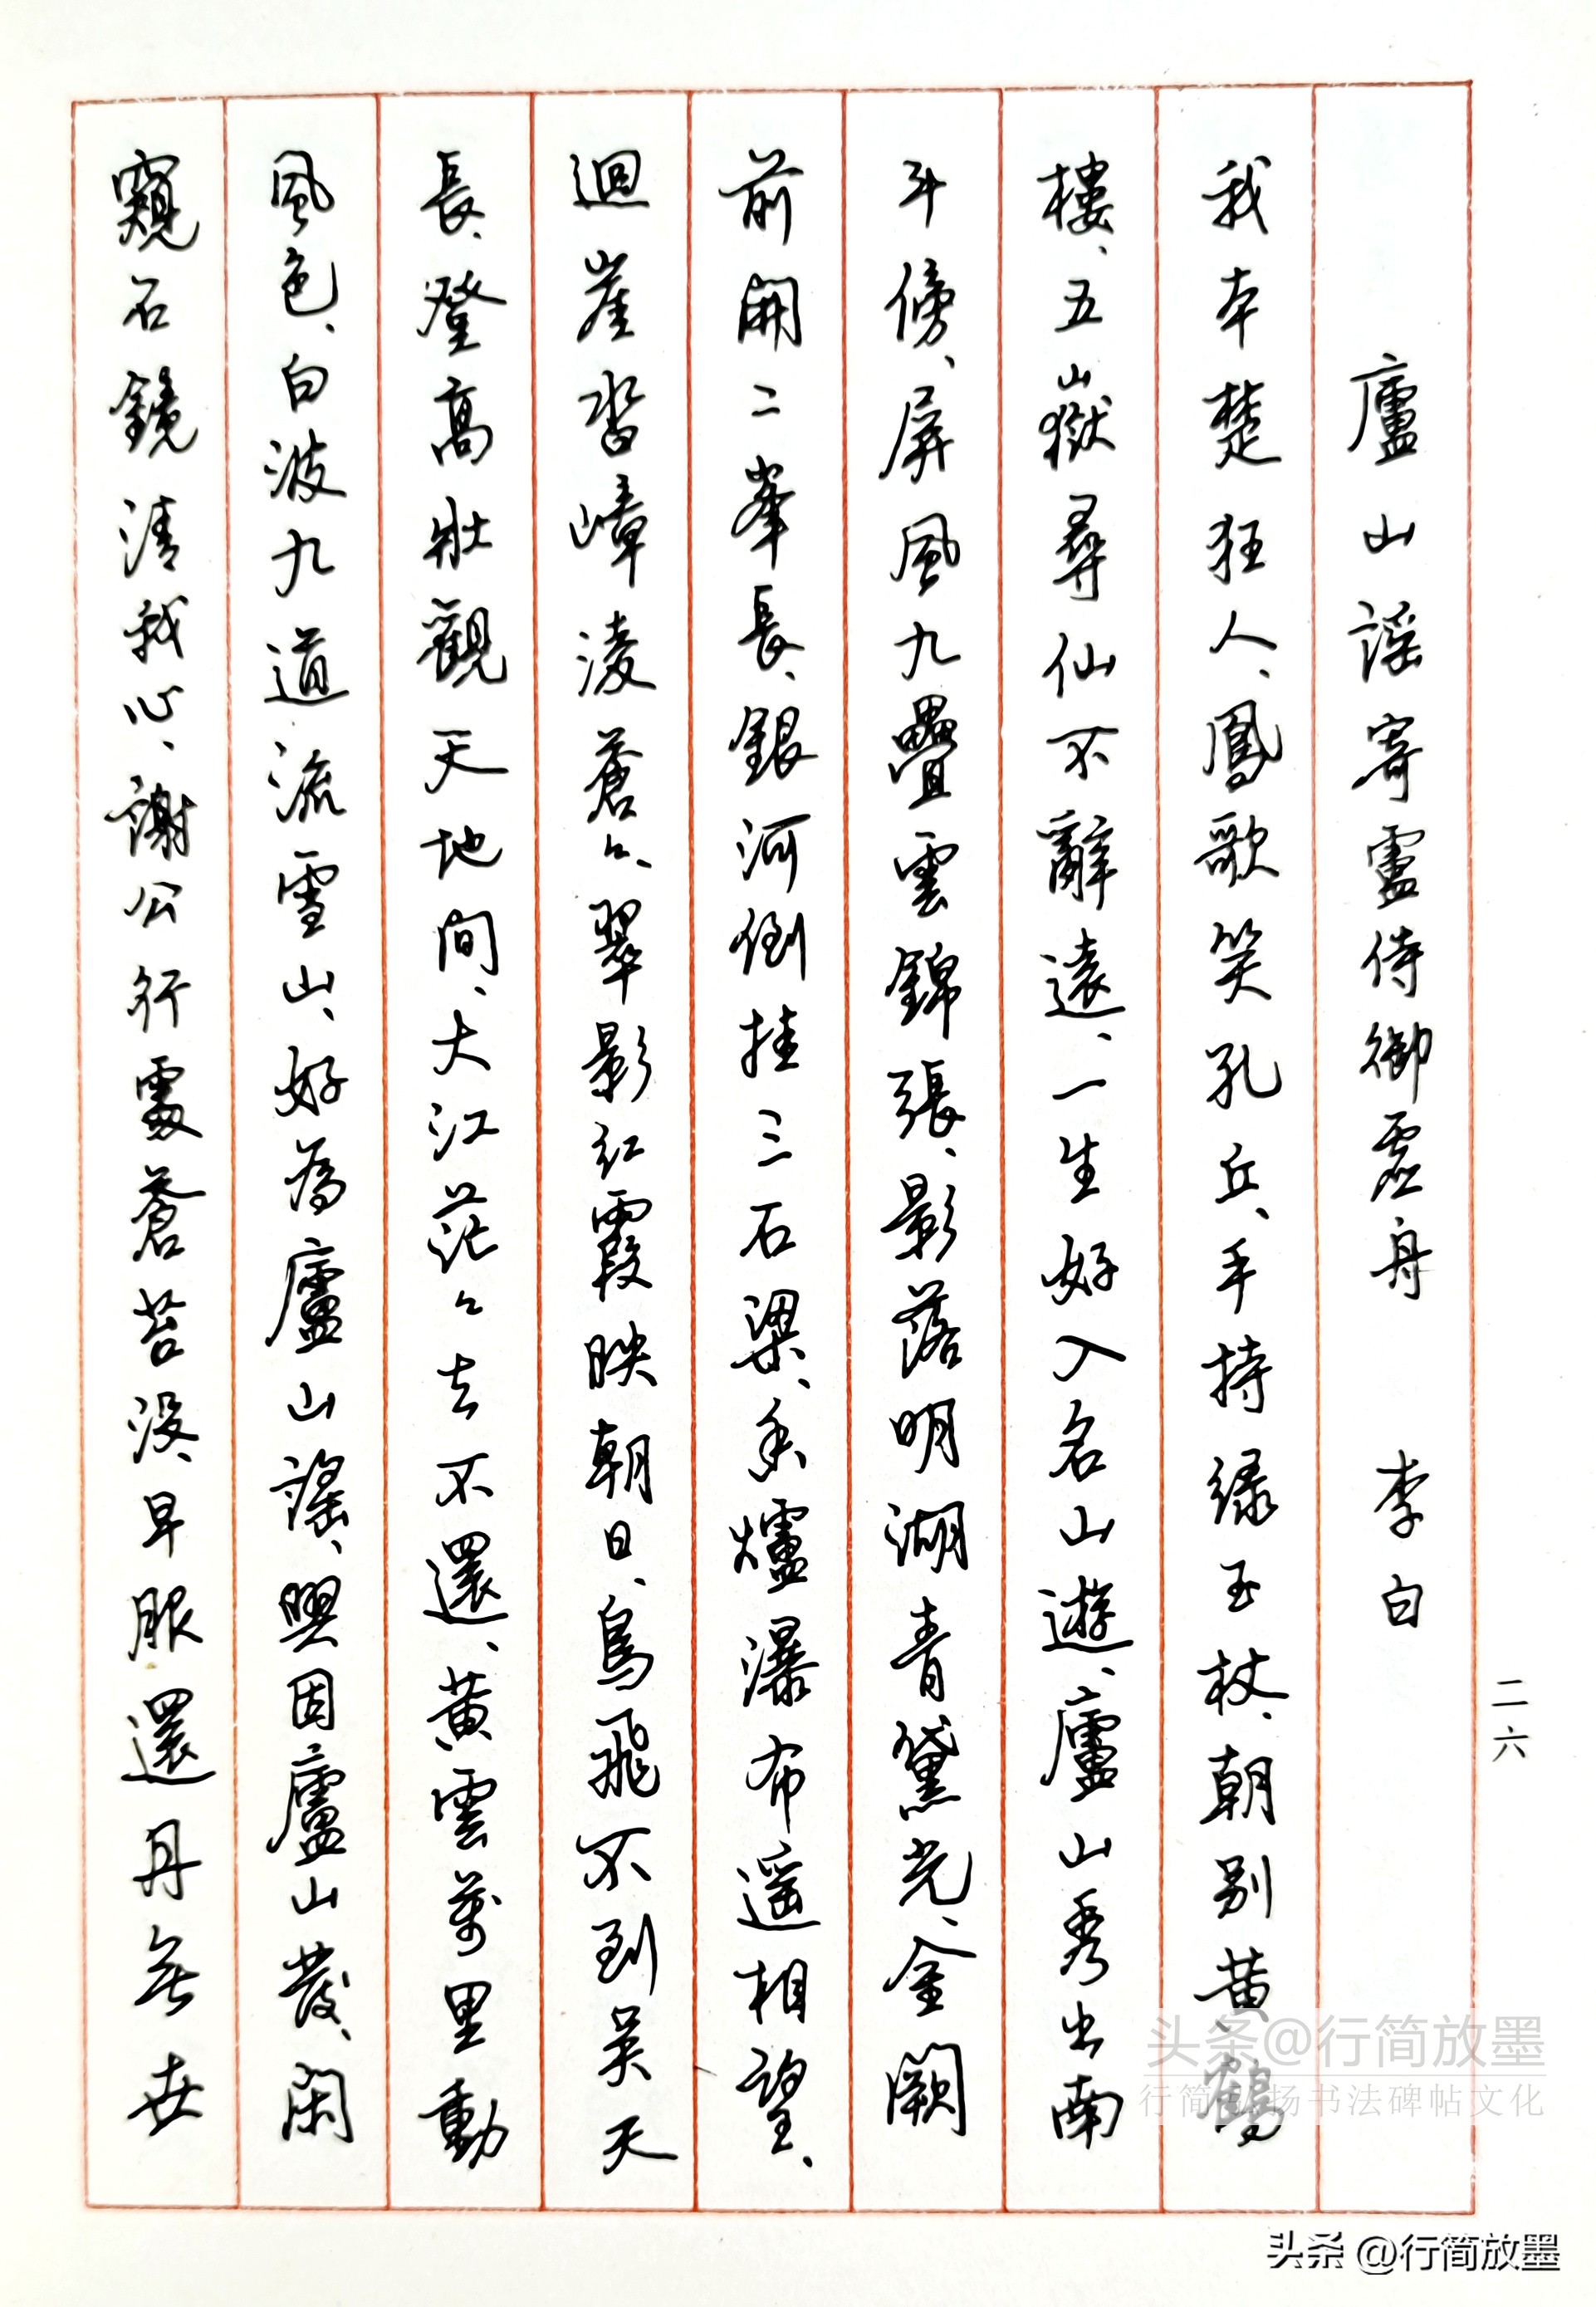 二六
廬山謡寄盧侍御虛舟　李白
我本楚狂人、鳳歌笑孔丘、手持緑玉杖、朝別黄鶴
樓、五嶽尋仙不辭遠、一生好入名山遊、廬山秀出南
斗傍、屏風九疊雲錦張、影落明湖青黛光、金闕
前開二峯長、銀河倒挂三石梁、香爐瀑布遥相望、
迴崖沓嶂淩蒼々、翠影紅霞映朝日、鳥飛不到吴天
長、登高壯觀天地間、大江茫々去不還、黄雲萬里動
風色、白波九道流雪山、好為廬山謡、興因廬山發、閑
窺石鏡清我心、謝公行處蒼苔没、早服還丹無世
头条@行简放墨
行简 扬书法碑帖文化
头条 @行简放墨